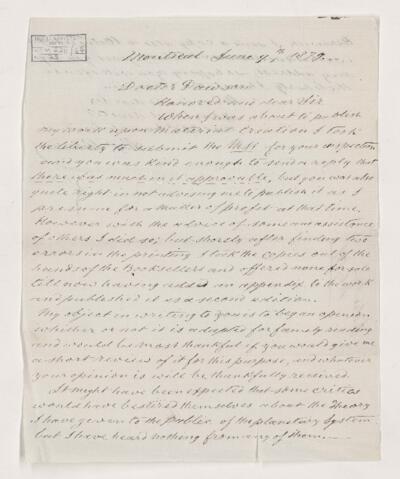 Montreal June 9th 1879
Doctor Dawson
Honored and dear Sir
When I was about to publish
my work upon Material Creation I took
the liberty to submit the MSS for your inspection
and you was kind enough to send a reply that
there was much in it approvable, but you was also
quite right in not advising me to publish it as I
presume for a matter of profit at that time.
However with the advice of some and assistance
of others I did so; but shortly after finding two
errors in the printing I took the copies out of the
hands of the Booksellers and offered none for sale
till now having added an appendix to the work
and published it as a second edition.
My object in writing to you is to beg an openion
whither or not it is adapted for family reading
and would be most thankful if you would give me
a short review of it for this purpose, and whatever
your opinion is will be thankfully received.
It might have been expected that some critics
would have bestired themselves about the Theory
I have given to the Public of the planetary System
but I have heard nothing from any of them